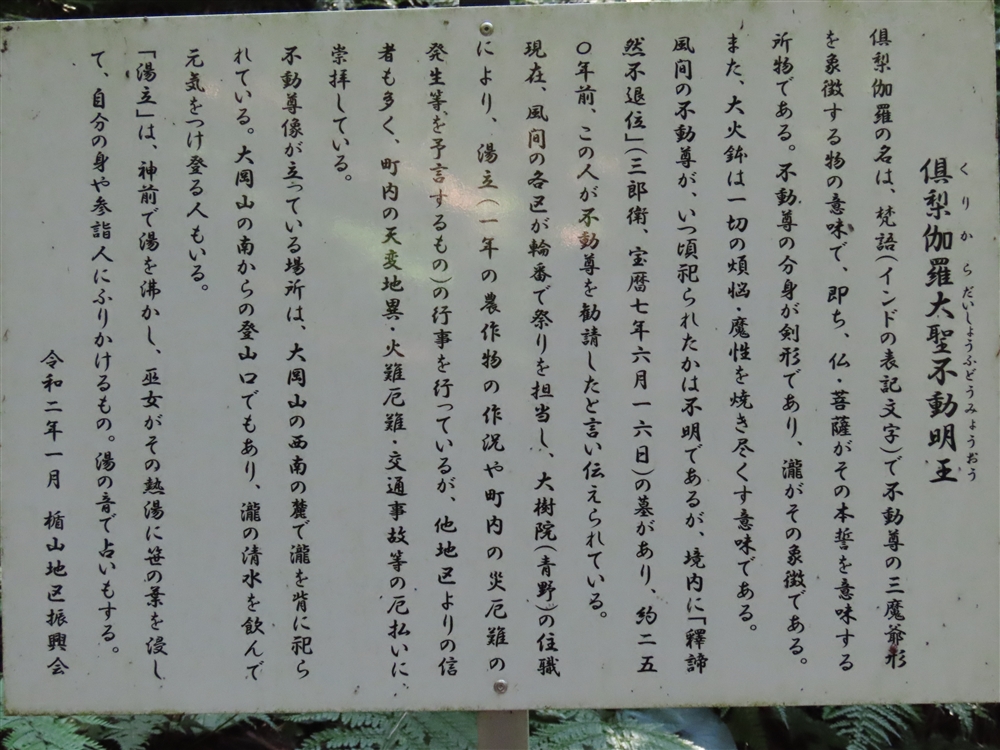 俱梨伽羅大聖不動明王
くりからだいしょうふどうみょうおう
俱梨伽羅の名は、梵語(インドの表記文字)で不動尊の三魔爺形
を象徴する物の意味で、即ち、仏・菩薩がその本誓を意味する
所物である。不動尊の分身が剣形であり、瀧がその象徴である。
また、大火鉢は一切の煩悩・魔性を焼き尽くす意味である。
風間の不動尊が、いつ頃祀られたかは不明であるが、境内に「釋諦
然不退位」(三郎衛、宝暦七年六月一六日)の墓があり、約二五
〇年前、この人が不動尊を勧請したと言い伝えられている。
現在、風間の各区が輪番で祭りを担当し、大樹院(青野)の住職
により、湯立(一年の農作物の作況や町内の災厄難の
発生等を予言するもの)の行事を行っているが、他地区よりの信
者も多く、町内の天変地異・火難厄難・交通事故等の厄払いに
崇拝している。
不動尊像が立っている場所は、大岡山の西南の麓で瀧を背に祀ら
れている。大岡山の南からの登山口でもあり、瀧の清水を飲んで
元気をつけ登る人もいる。
「湯立」は、神前で湯を沸かし、巫女がその熱湯に笹の葉を浸し
て、自分の身や参詣人にふりかけるもの。湯の音で占いもする。
令和二年一月 楯山地区振興会